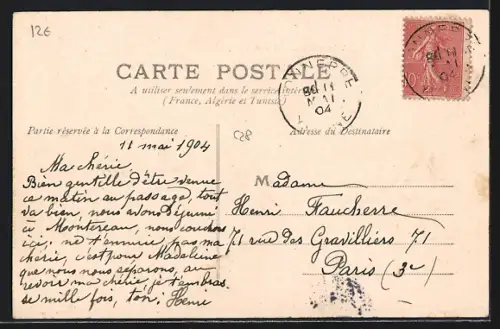 12€
CARTE POSTALE
A utiliser seulement dans le service intérieur
(France, Algérie et Tunisie)
Partie réservée à la Correspondance
Adresse du Destinataire
C28
11 mai 1904
Ma chérie,
Bien gentille d'être venue
ce matin au passage, tout
va bien, nous avons Déjeuné
à Montereau, nous couchons
ici; ne t'ennuie pas ma
chérie, c'est pour Madeleine
que nous nous séparons, au
revoir ma chérie je t'embrasse
mille fois, ton, Henri
Madame
Henri Faucherre
71 rue des Gravilliers 71
Paris (3e)
11
MAI
04
10